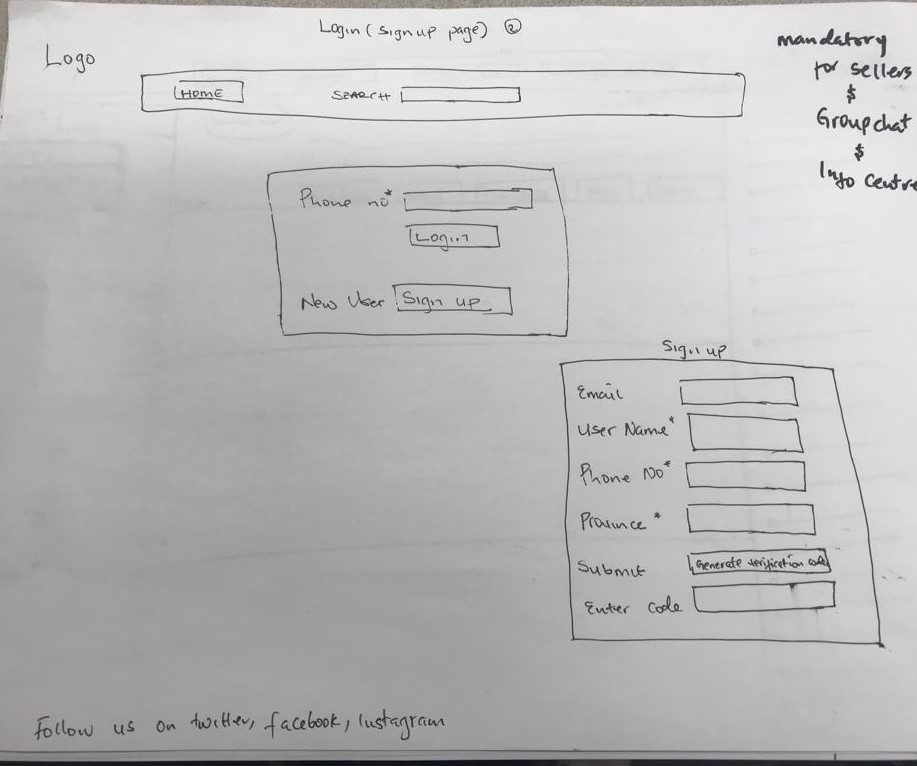 Login (sign up page) ②
Logo
mandatory
for sellers
$
Groupchat
$
Info Centre
HOME SEARCH
Phone no*
Login
New User Sign up
Sign up
Email
User Name*
Phone No*
Province*
Submit Generate verification code
Enter Code
Follow us on twitter, facebook, Instagram